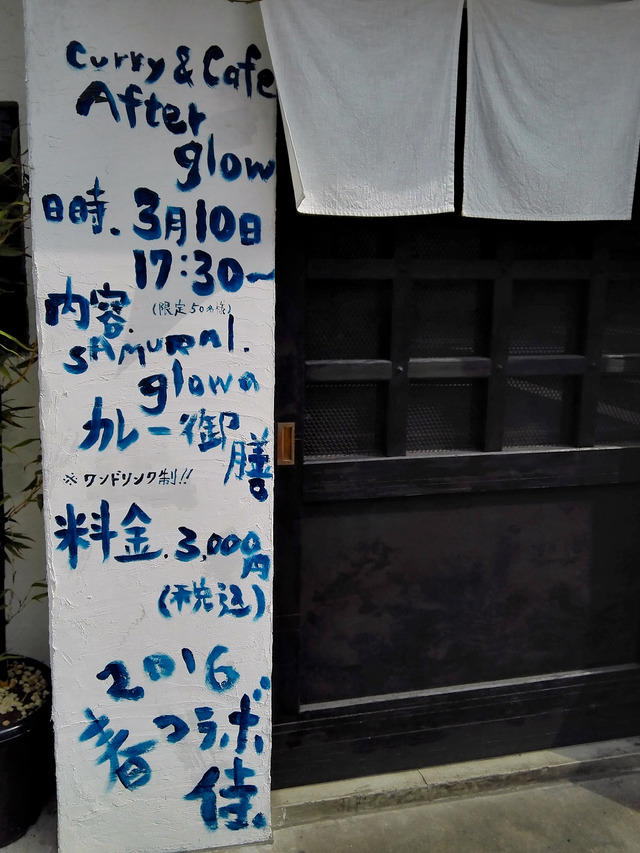 Curry & Cafe
After
glow
日時. 3月10日
17:30〜
(限定50名様)
内容.
SAMURAI.
glowの
カレー御膳。
※ワンドリンク制!!
料金. 3,000円
(税込)
2016.
春コラボ.
佳.